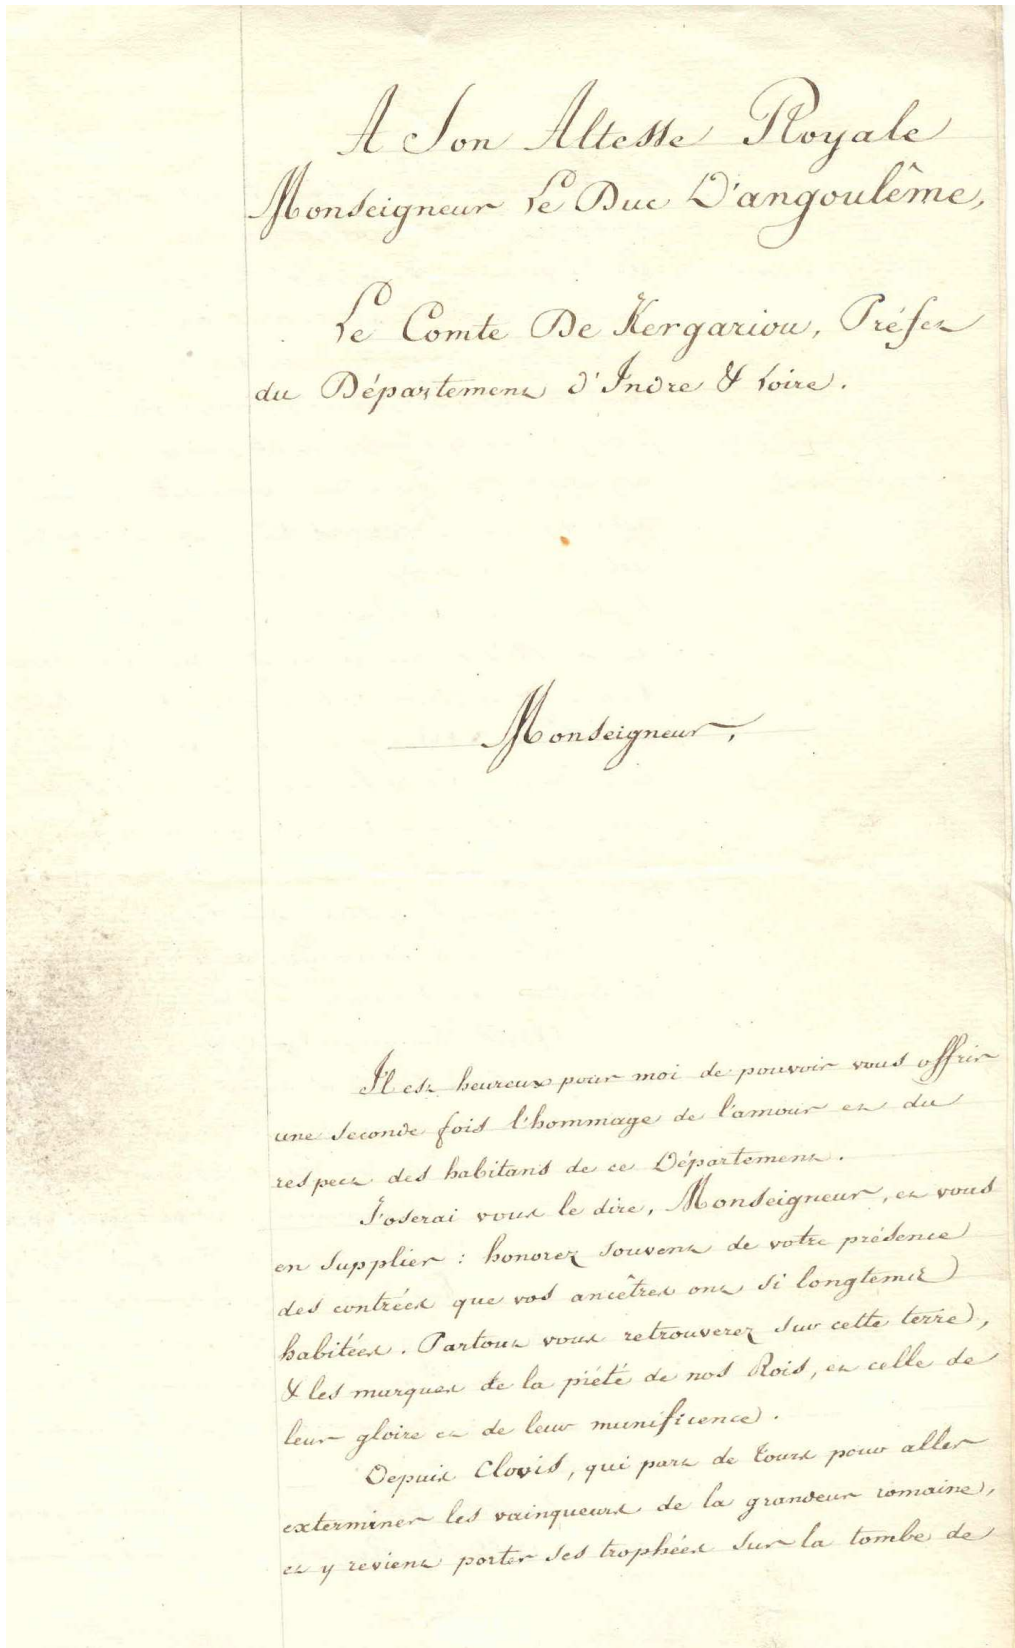 A Son Altesse Royale
Monseigneur Le Duc D'angoulême,
Le Comte De Kergariou, Préfet
du Département d'Indre & Loire.
Monseigneur,
Il est heureux pour moi de pouvoir vous offrir
une seconde fois l'hommage de l'amour et du
respect des habitans de ce Département.
J'oserai vous le dire, Monseigneur, et vous
en supplier : honorez souvent de votre présence
des contrées que vos ancêtres ont si longtems
habitées. Partout vous retrouverez sur cette terre,
& les marques de la piété de nos Rois, et celle de
leur gloire et de leur munificence.
Depuis Clovis, qui part de Tours pour aller
exterminer les vainqueurs de la grandeur romaine,
et y revient porter ses trophées sur la tombe de